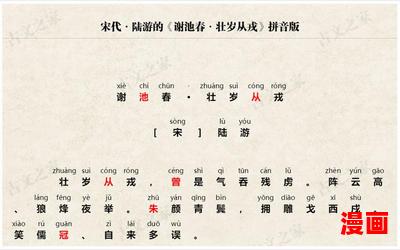 宋代·陆游的《谢池春·壮岁从戎》拼音版
xiè chí chūn · zhuàng suì cóng róng
谢池春·壮岁从戎
sòng lù yóu
[宋]陆游
zhuàng suì cóng róng céng shì qì tūn cán lǔ zhèn yún gāo
壮岁从戎，曾是气吞残虏。阵云高
láng fēng yè jǔ zhū yán qīng bìn yōng diāo gē xī shù
、狼烽夜举。朱颜青鬓，拥雕戈西戍
xiào rú guàn zì lái duō wù
笑儒冠、自来多误。
漫画
古文之家